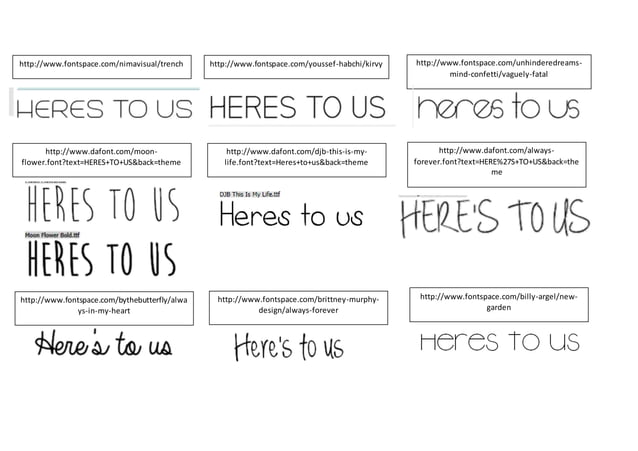 http://www.fontspace.com/nimavisual/trench
http://www.fontspace.com/youssef-habchi/kirvy
http://www.fontspace.com/unhinderedreams-
mind-confetti/vaguely-fatal
HERES TO US
HERES TO US
heres to us
http://www.dafont.com/moon-
flower.font?text=HERES+TO+US&back=theme
http://www.dafont.com/djb-this-is-my-
life.font?text=Heres+to+us&back=theme
http://www.dafont.com/always-
forever.font?text=HERE%27S+TO+US&back=the
me
HERES TO US
Moon Flower Bold.ttf
HERES TO US
DJB This Is My Life.ttf
Heres to us
HERE'S TO US
http://www.fontspace.com/bythebutterfly/alwa
ys-in-my-heart
http://www.fontspace.com/brittney-murphy-
design/always-forever
http://www.fontspace.com/billy-argel/new-
garden
Here's to us
Here's to us
Heres to us